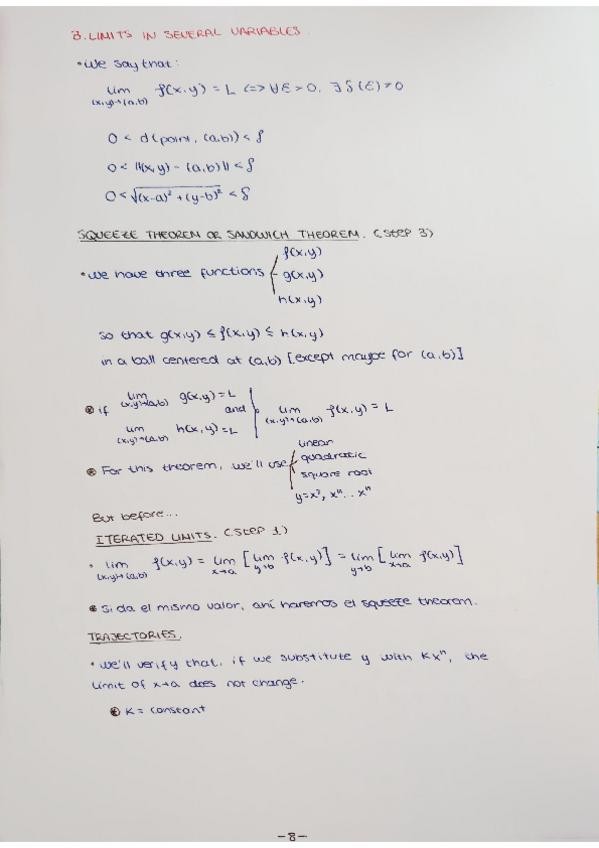 3. LIMITS IN SEVERAL VARIABLES.
• We say that:
lim f(x,y) = L <=> ∀ε > 0, ∃ δ(ε) > 0
(x,y)→(a,b)
0 < d(point, (a,b)) < δ
0 < ||(x,y) - (a,b)|| < δ
0 < √(x-a)² + (y-b)² < δ
SQUEEZE THEOREM OR SANDWICH THEOREM. (Step 3)
f(x,y)
• We have three functions g(x,y)
h(x,y)
so that g(x,y) ≤ f(x,y) ≤ h(x,y)
in a ball centered at (a,b) [except maybe for (a,b)]
lim g(x,y) = L
(x,y)→(a,b)
if and lim f(x,y) = L
(x,y)→(a,b)
lim h(x,y) = L
(x,y)→(a,b)
linear
For this theorem, we'll use quadratic
square root
y=x³, xⁿ... xⁿ
But before...
ITERATED LIMITS. (Step 1)
• lim f(x,y) = lim [lim f(x,y)] = lim [lim f(x,y)]
(x,y)→(a,b) x→a y→b y→b x→a
Si da el mismo valor, ahí haremos el squeeze theorem.
TRAJECTORIES.
• We'll verify that, if we substitute y with Kxⁿ, the
limit of x→a does not change.
K = constant
-8-